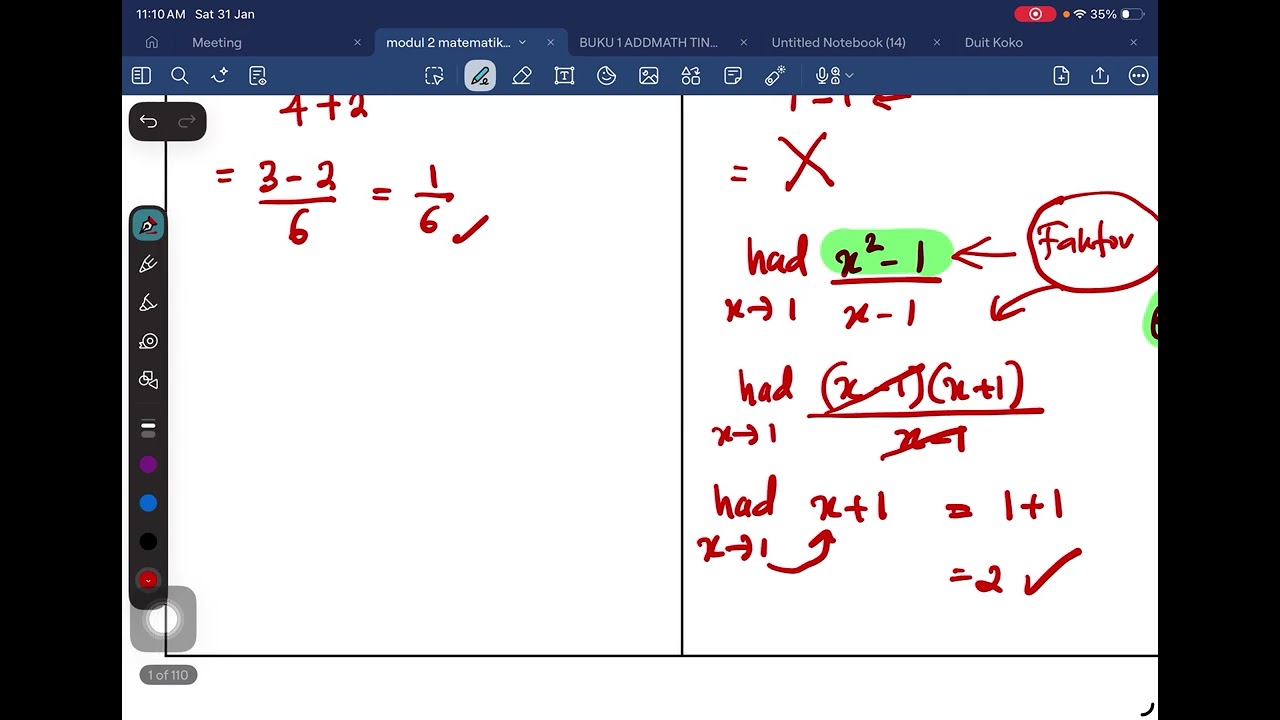 11:10 AM Sat 31 Jan 35%
Meeting modul 2 matematik... BUKU 1 ADDMATH TIN... Untitled Notebook (14) Duit Koko
4 + 2
= 3 - 2 / 6 = 1/6 ✓
1 - 1 ←
= X
had x→1 x² - 1 / x - 1 ← Faktor
had x→1 (x - 1)(x + 1) / x - 1
had x→1 x + 1 = 1 + 1
= 2 ✓
1 of 110